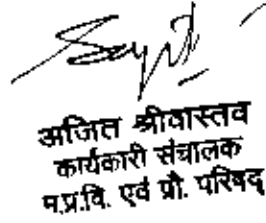 अजित श्रीवास्तव
कार्यकारी संचालक
म.प्र.वि. एवं प्रौ. परिषद्